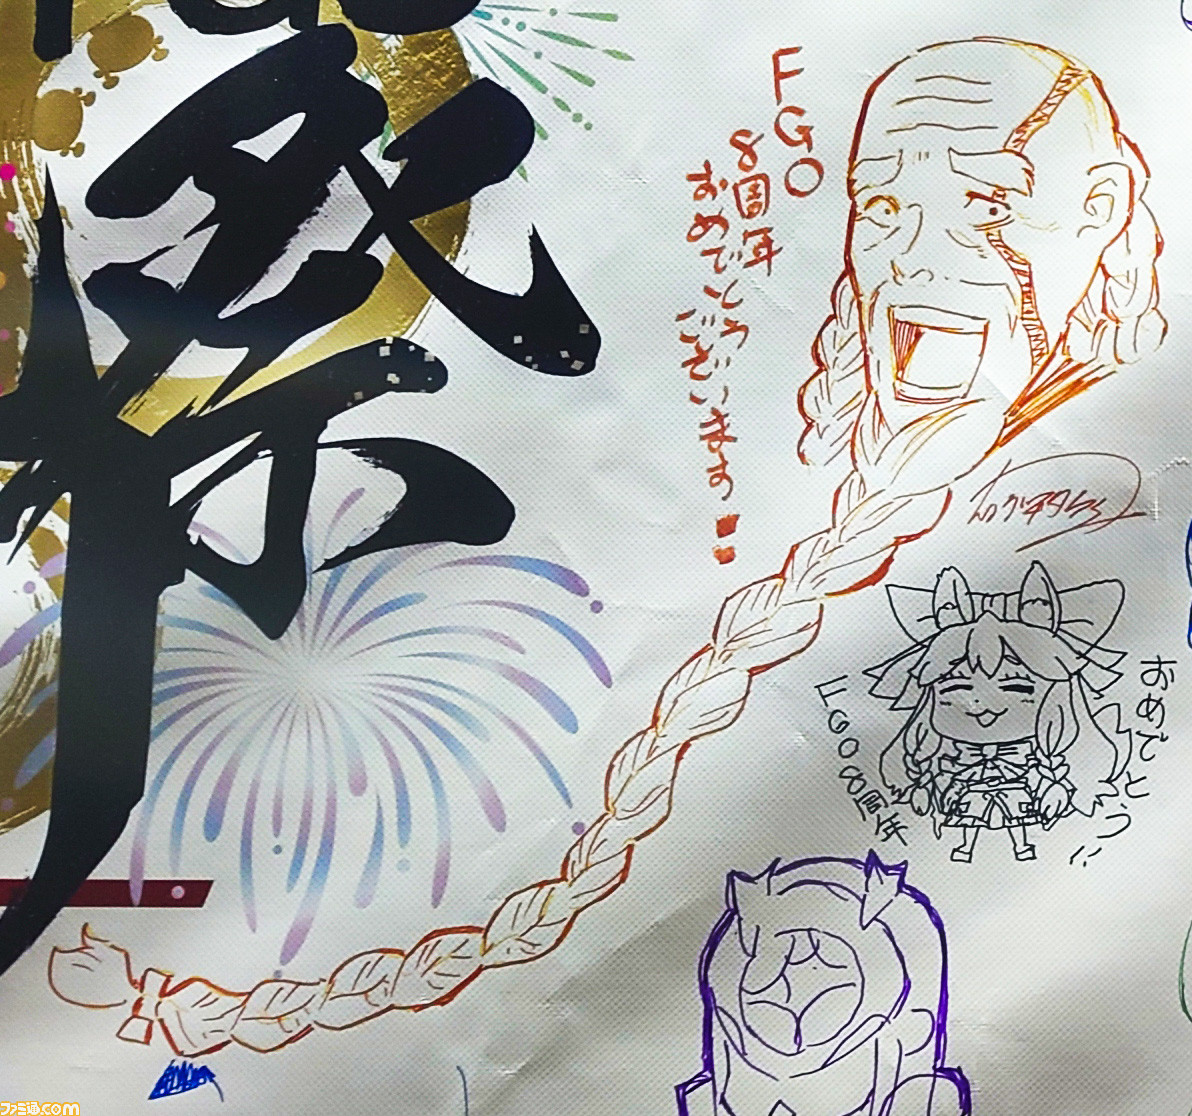 祭
FGO
8周年
おめでとうございます!!
FGO8周年
おめでとう!!
ファミ通.com